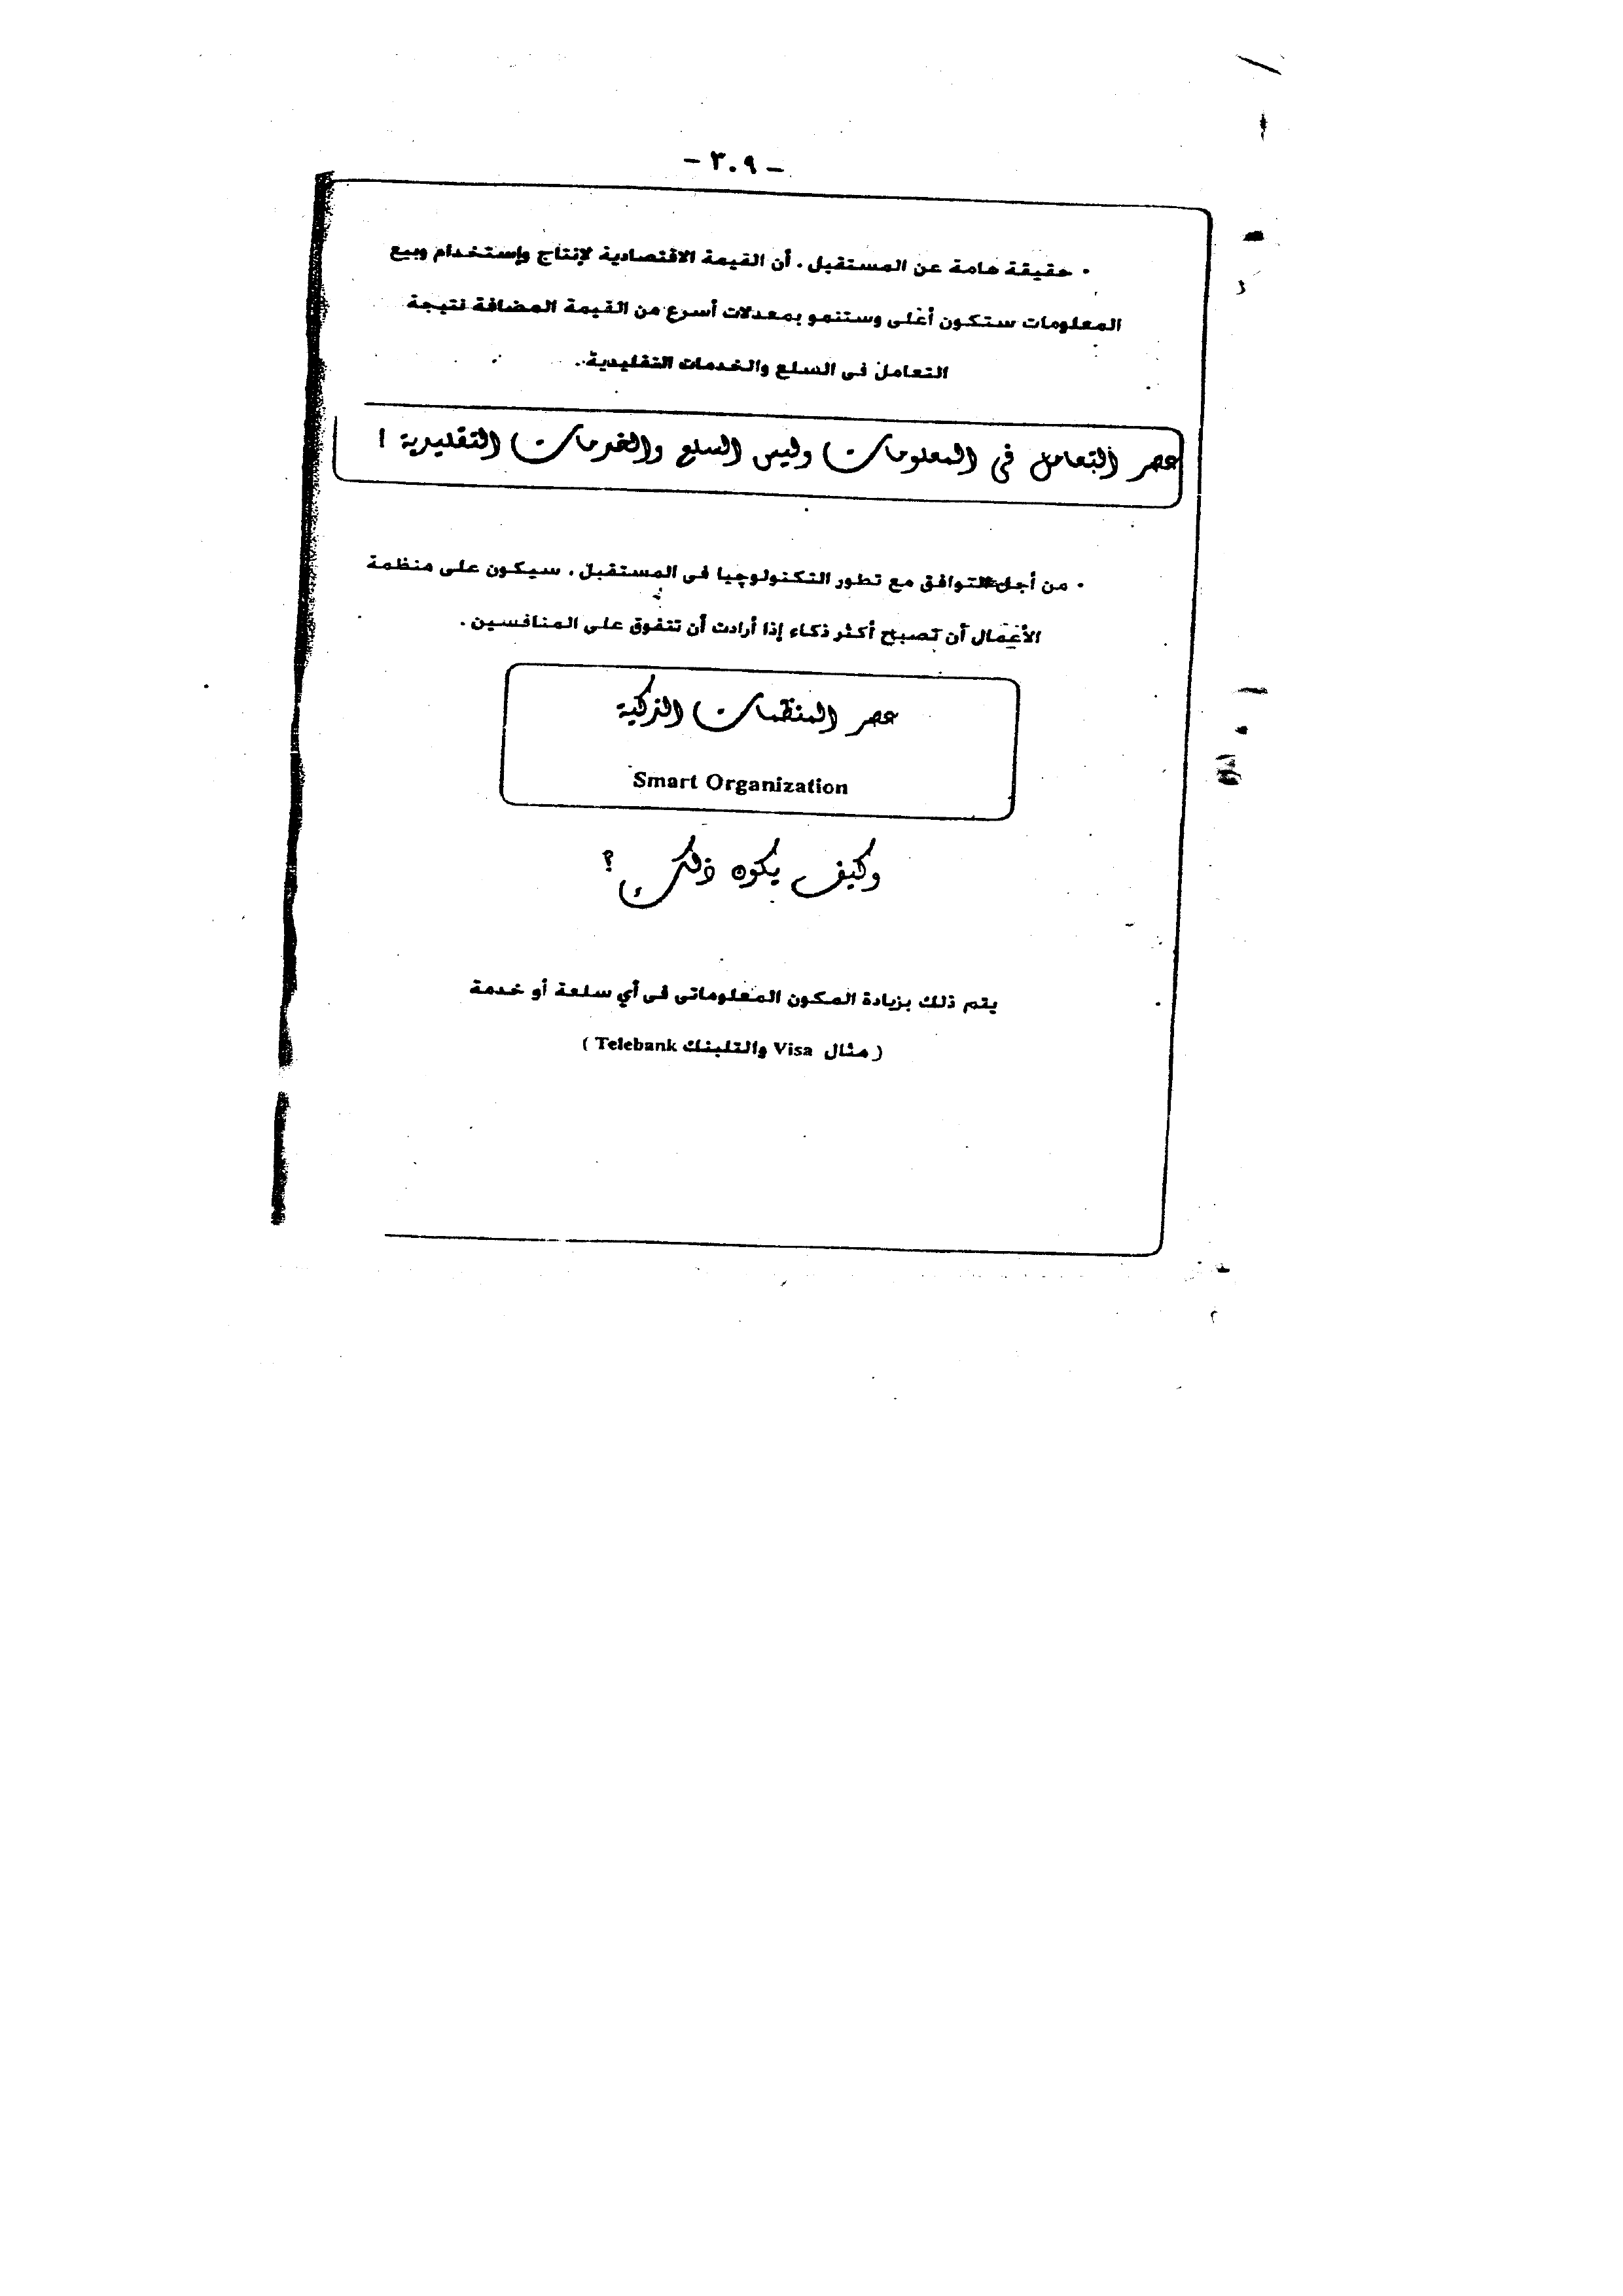 - ٣٠٩ -
• حقيقة هامة عن المستقبل . أن القيمة الاقتصادية لإنتاج وإستخدام وبيع
المعلومات ستكون أغلى وستنمو بمعدلات أسرع من القيمة المضافة نتيجة
التعامل فى السلع والخدمات التقليدية .
عصر التعامل فى المعلومات وليس السلع والخدمات التقليدية !
• من أجل التوافق مع تطور التكنولوجيا فى المستقبل . سيكون على منظمة
الأعمال أن تصبح أكثر ذكاء إذا أرادت أن تتفوق على المنافسين .
عصر المنظمات الذكية
Smart Organization
وكيف يكون ذلك ؟
يتم ذلك بزيادة المكون المعلوماتى فى أي سلعة أو خدمة
( مثال Visa والتلبنك Telebank )